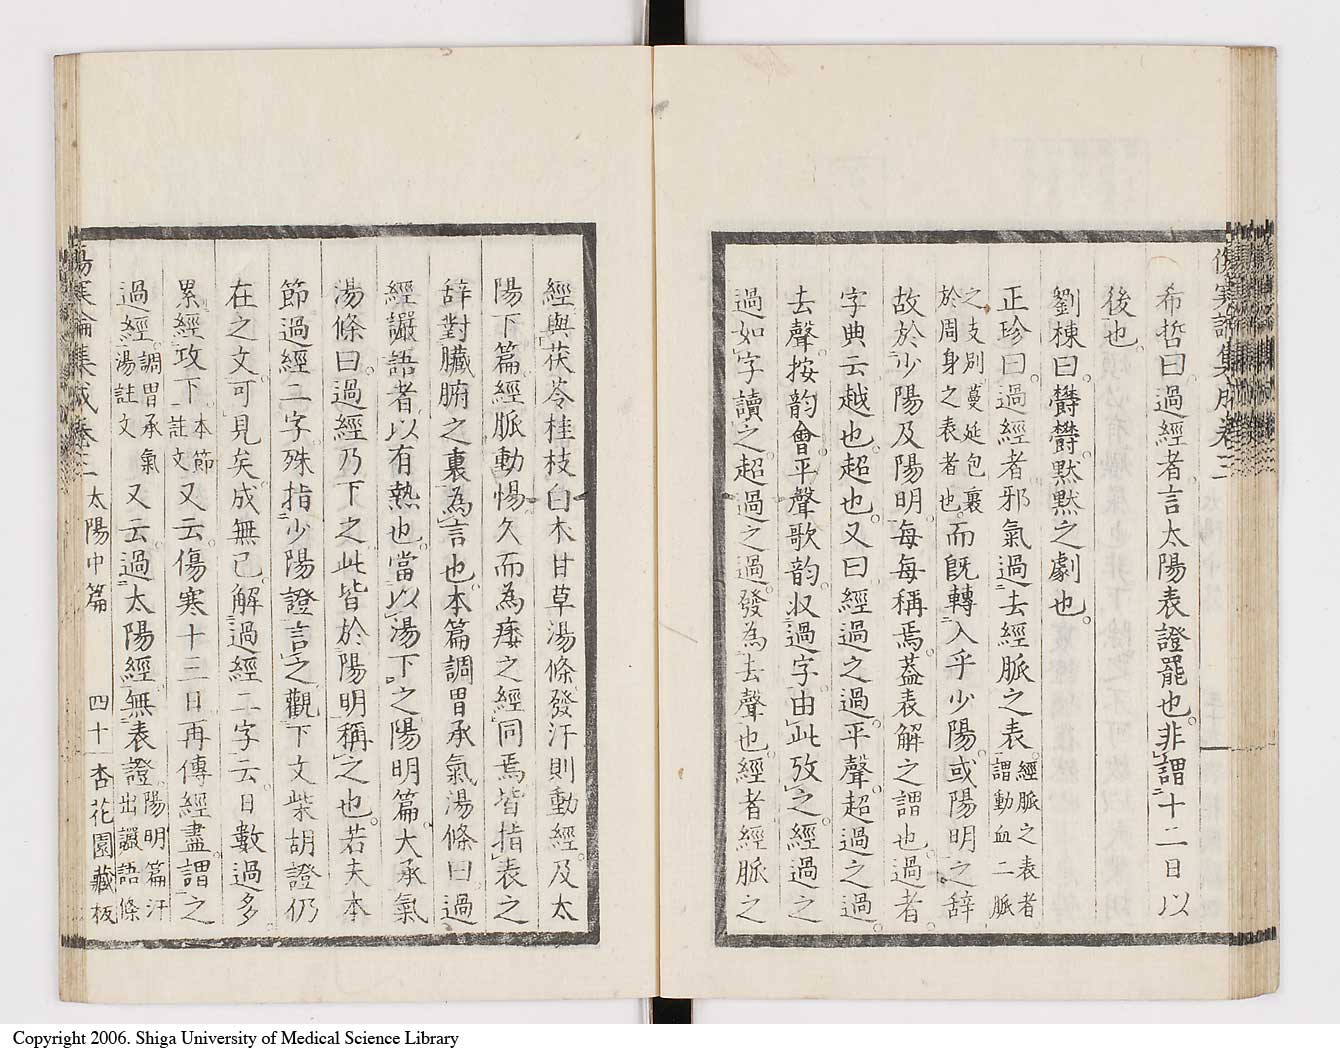 傷寒論集成卷三
希哲曰。過經者。言太陽表證罷也。非謂十二日以
後也。
劉棟曰。欝欝默默之劇也。
正珍曰。過經者。邪氣過去經脈之表。經脈之表者
謂動血二脈
之支別蔓延包裏
於周身之表者也。而既轉入乎少陽。或陽明之辭
故於少陽及陽明。每每稱焉。蓋表解之謂也。過者。
字典云越也。超也。又曰。經過之過。平聲。超過之過。
去聲。按韵會平聲歌韵。收過字。由此攷之。經過之
過。如字讀之。超過之過。發為去聲也。經者經脈之
經。與茯苓桂枝白木甘草湯條發汗則動經。及太
陽下篇。經脈動惕。久而為痿之經同焉。皆指表之
辞。對臟腑之裏為言也。本篇調胃承氣湯條曰。過
經讝語者。以有熱也。當以湯下之。陽明篇。大承氣
湯條曰。過經乃下之。此皆於陽明稱之也。若夫本
節過經二字。殊指少陽證言之。觀下文柴胡證仍
在之文。可見矣。成無己解過經二字云。日數過多。
累經攻下。本節
註文又云。傷寒十三日。再傳經盡。謂之
過經。調胃承氣
湯註文又云。過太陽經。無表證。陽明篇汗
出讝語條
傷寒論集成卷三 太陽中篇 四十 杏花園藏板
Copyright 2006. Shiga University of Medical Science Library